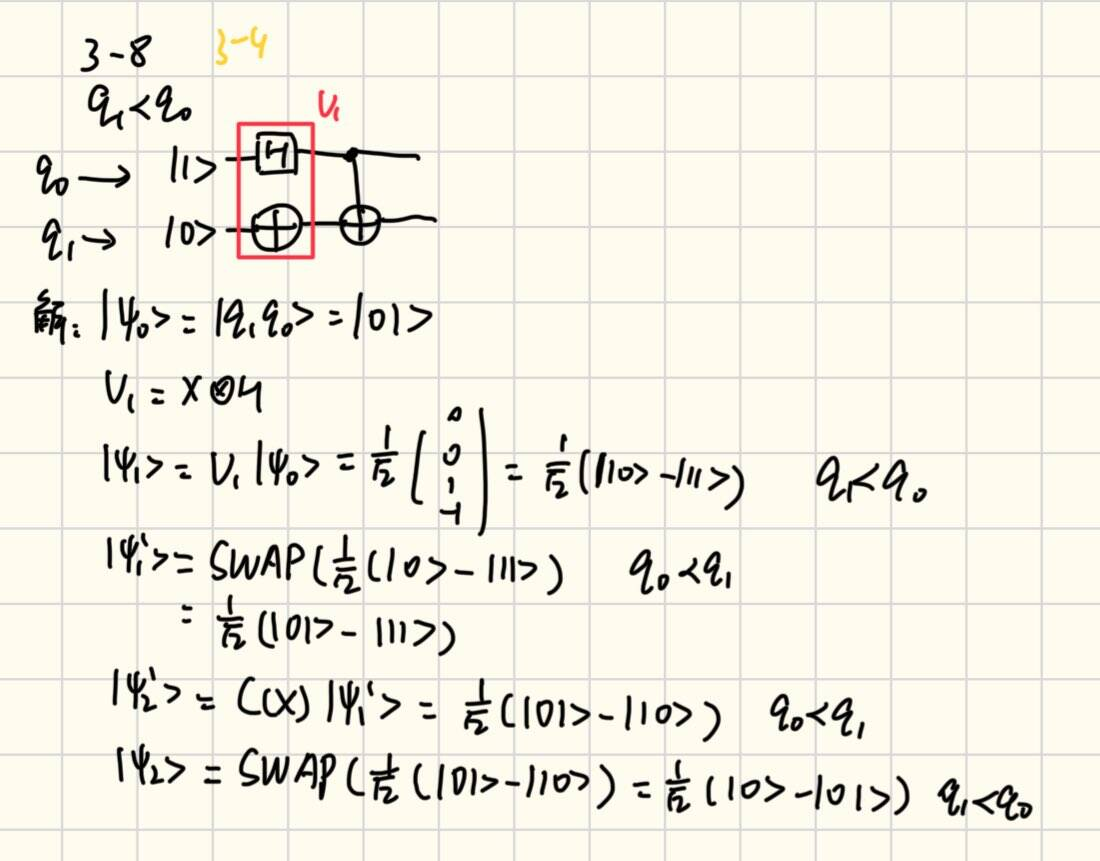 3-8 3-4
q₁<q₀
U₁
q₀ → |1> H
q₁ → |0>
|ψ₀> = |q₁q₀> = |01>
U₁ = X⊗H
|ψ₁> = U₁|ψ₀> = 1/√2 [0 0 1 -1] = 1/√2(|10> - |11>) q₁<q₀
|ψ₁'> = SWAP(1/√2(|10> - |11>) q₀<q₁
= 1/√2(|01> - |11>)
|ψ₂'> = C(X)|ψ₁'> = 1/√2(|01> - |10>) q₀<q₁
|ψ₂> = SWAP(1/√2(|01> - |10>) = 1/√2(|10> - |01>) q₁<q₀